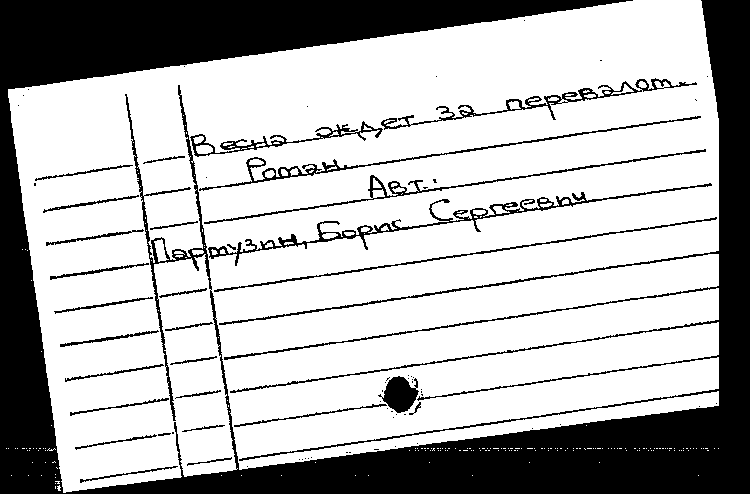 Весна ждет за перевалом.
Роман.
Авт.:
Партузин, Борис Сергеевич